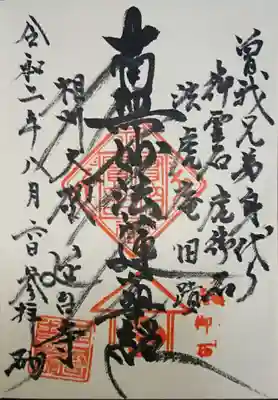 曽我兄弟身代り
御霊石 虎御石
法虎庵旧蹟
南無妙法蓮華経
相州大磯 延台寺
令和二年八月六日参拝